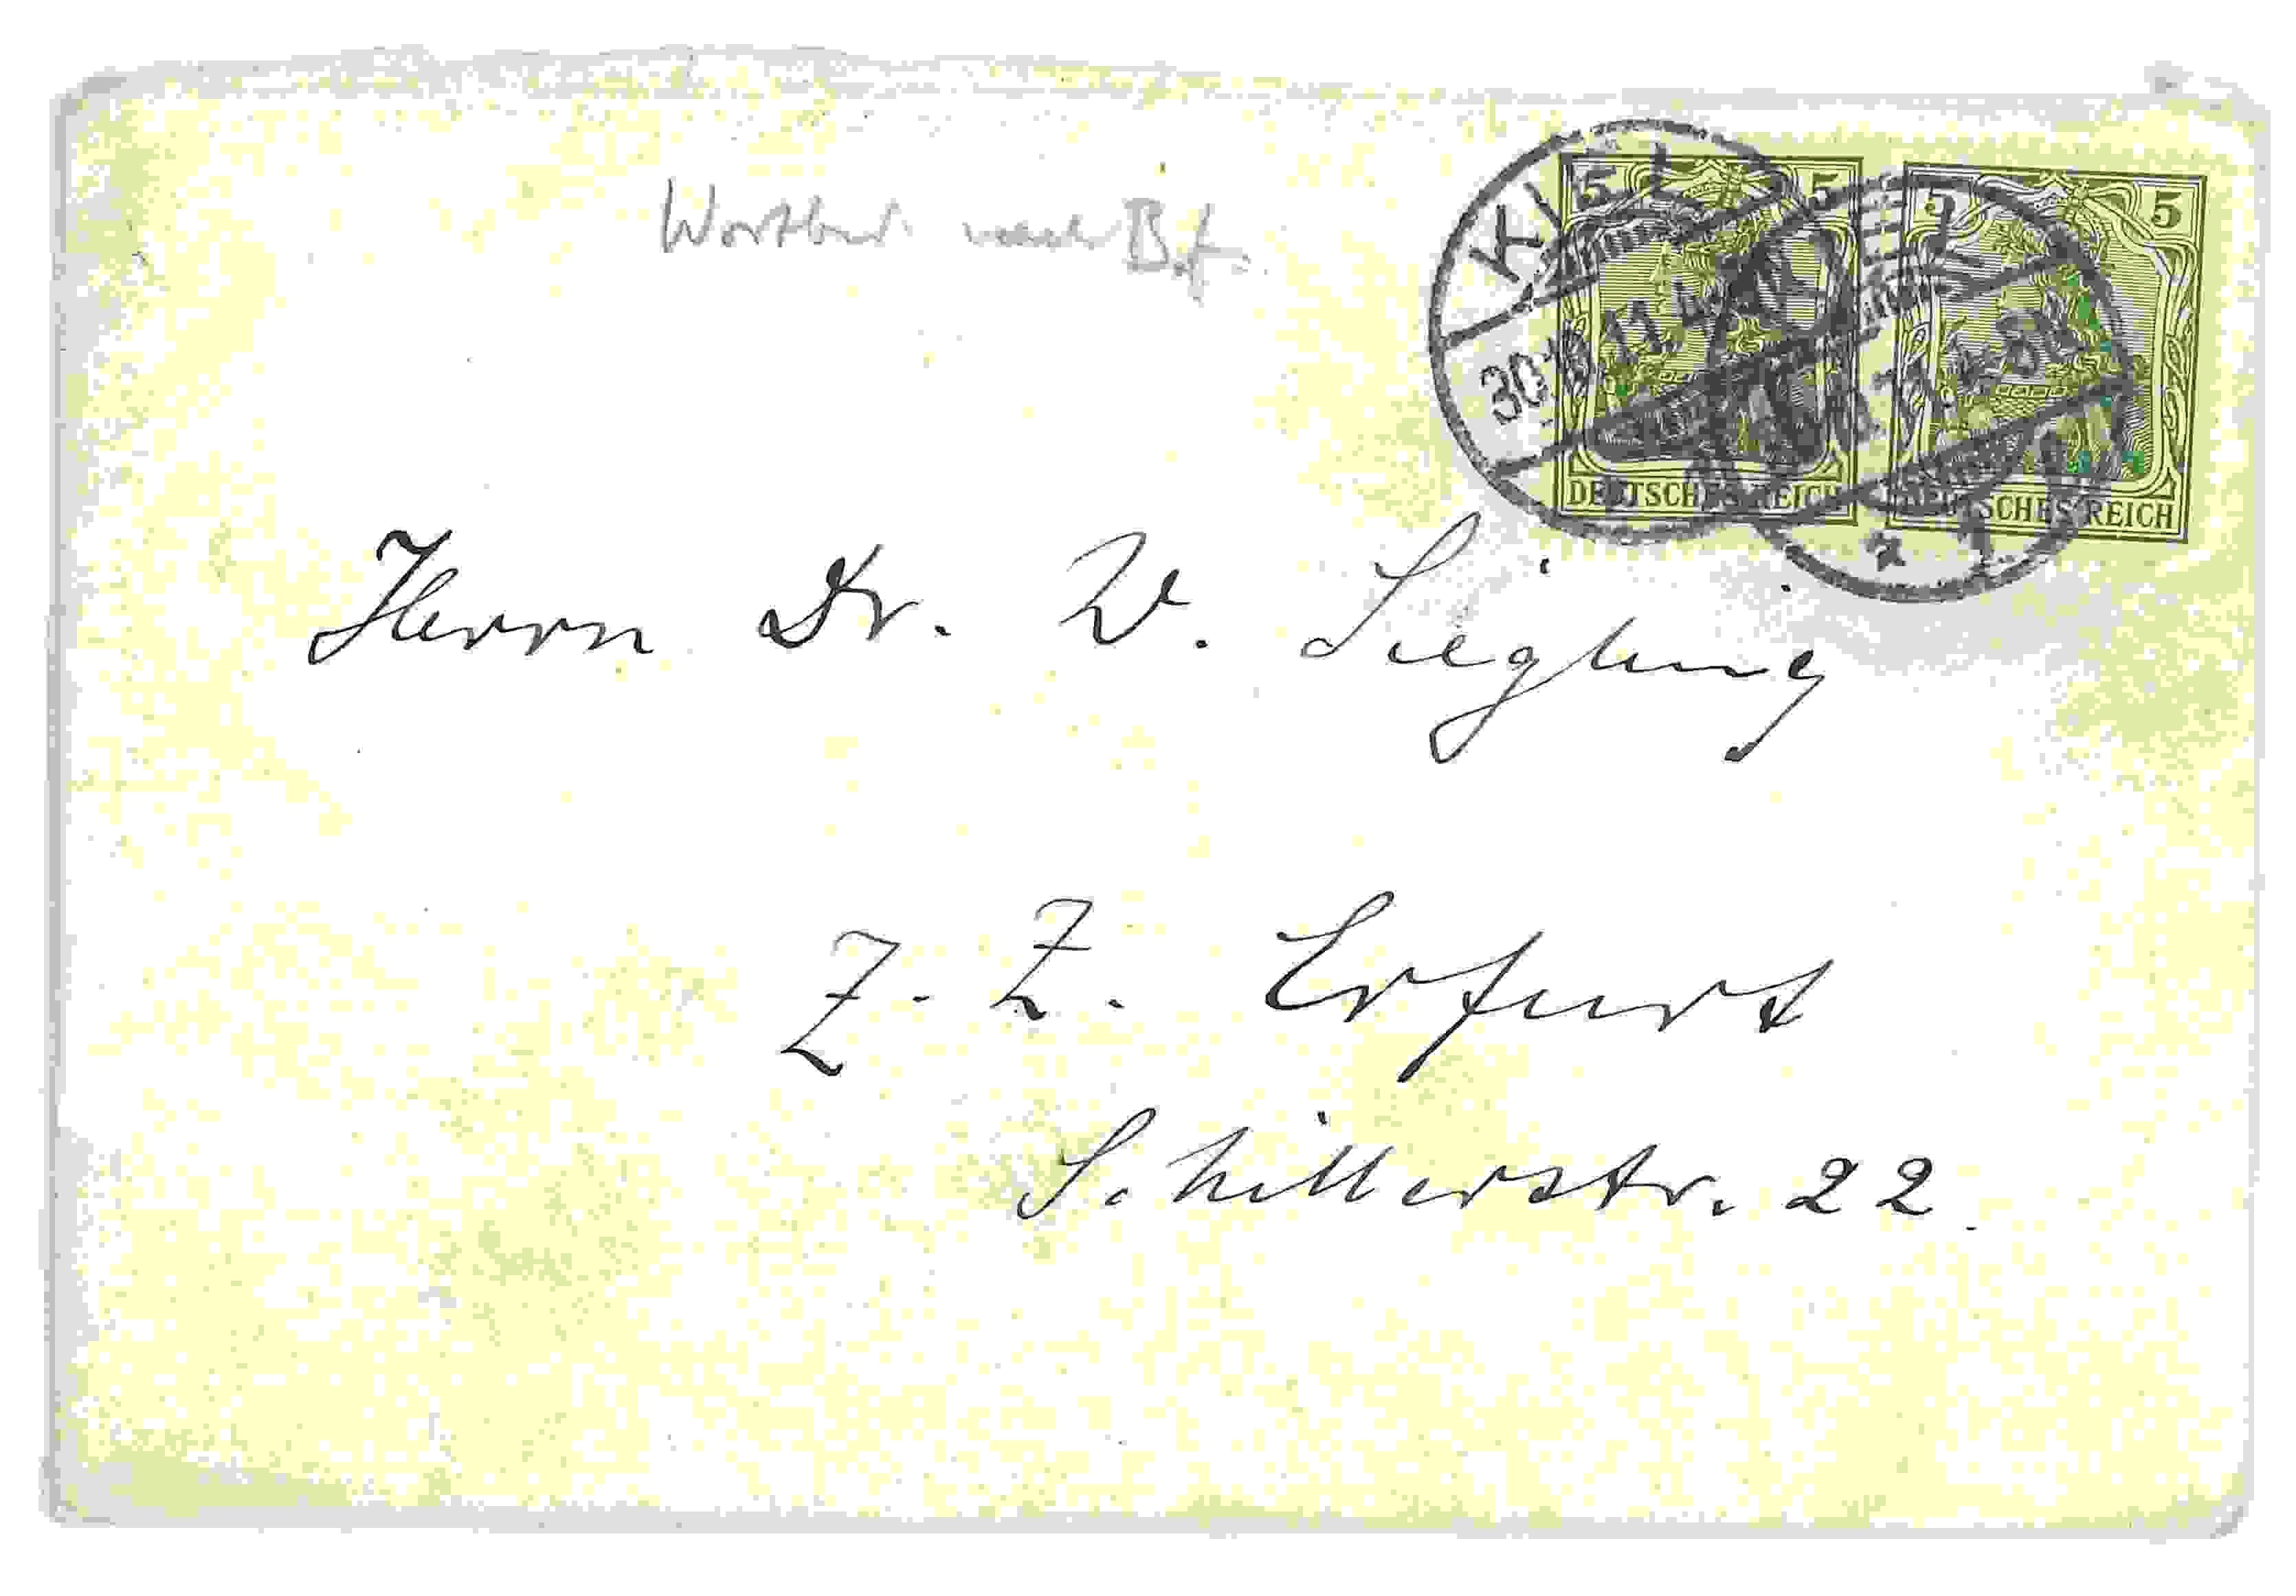 KIEL
5 5 5 5
30. 11
DEUTSCHES REICH DEUTSCHES REICH
Herrn Dr. W. Siegling
Z. Z. Erfurt
Schillerstr. 22.